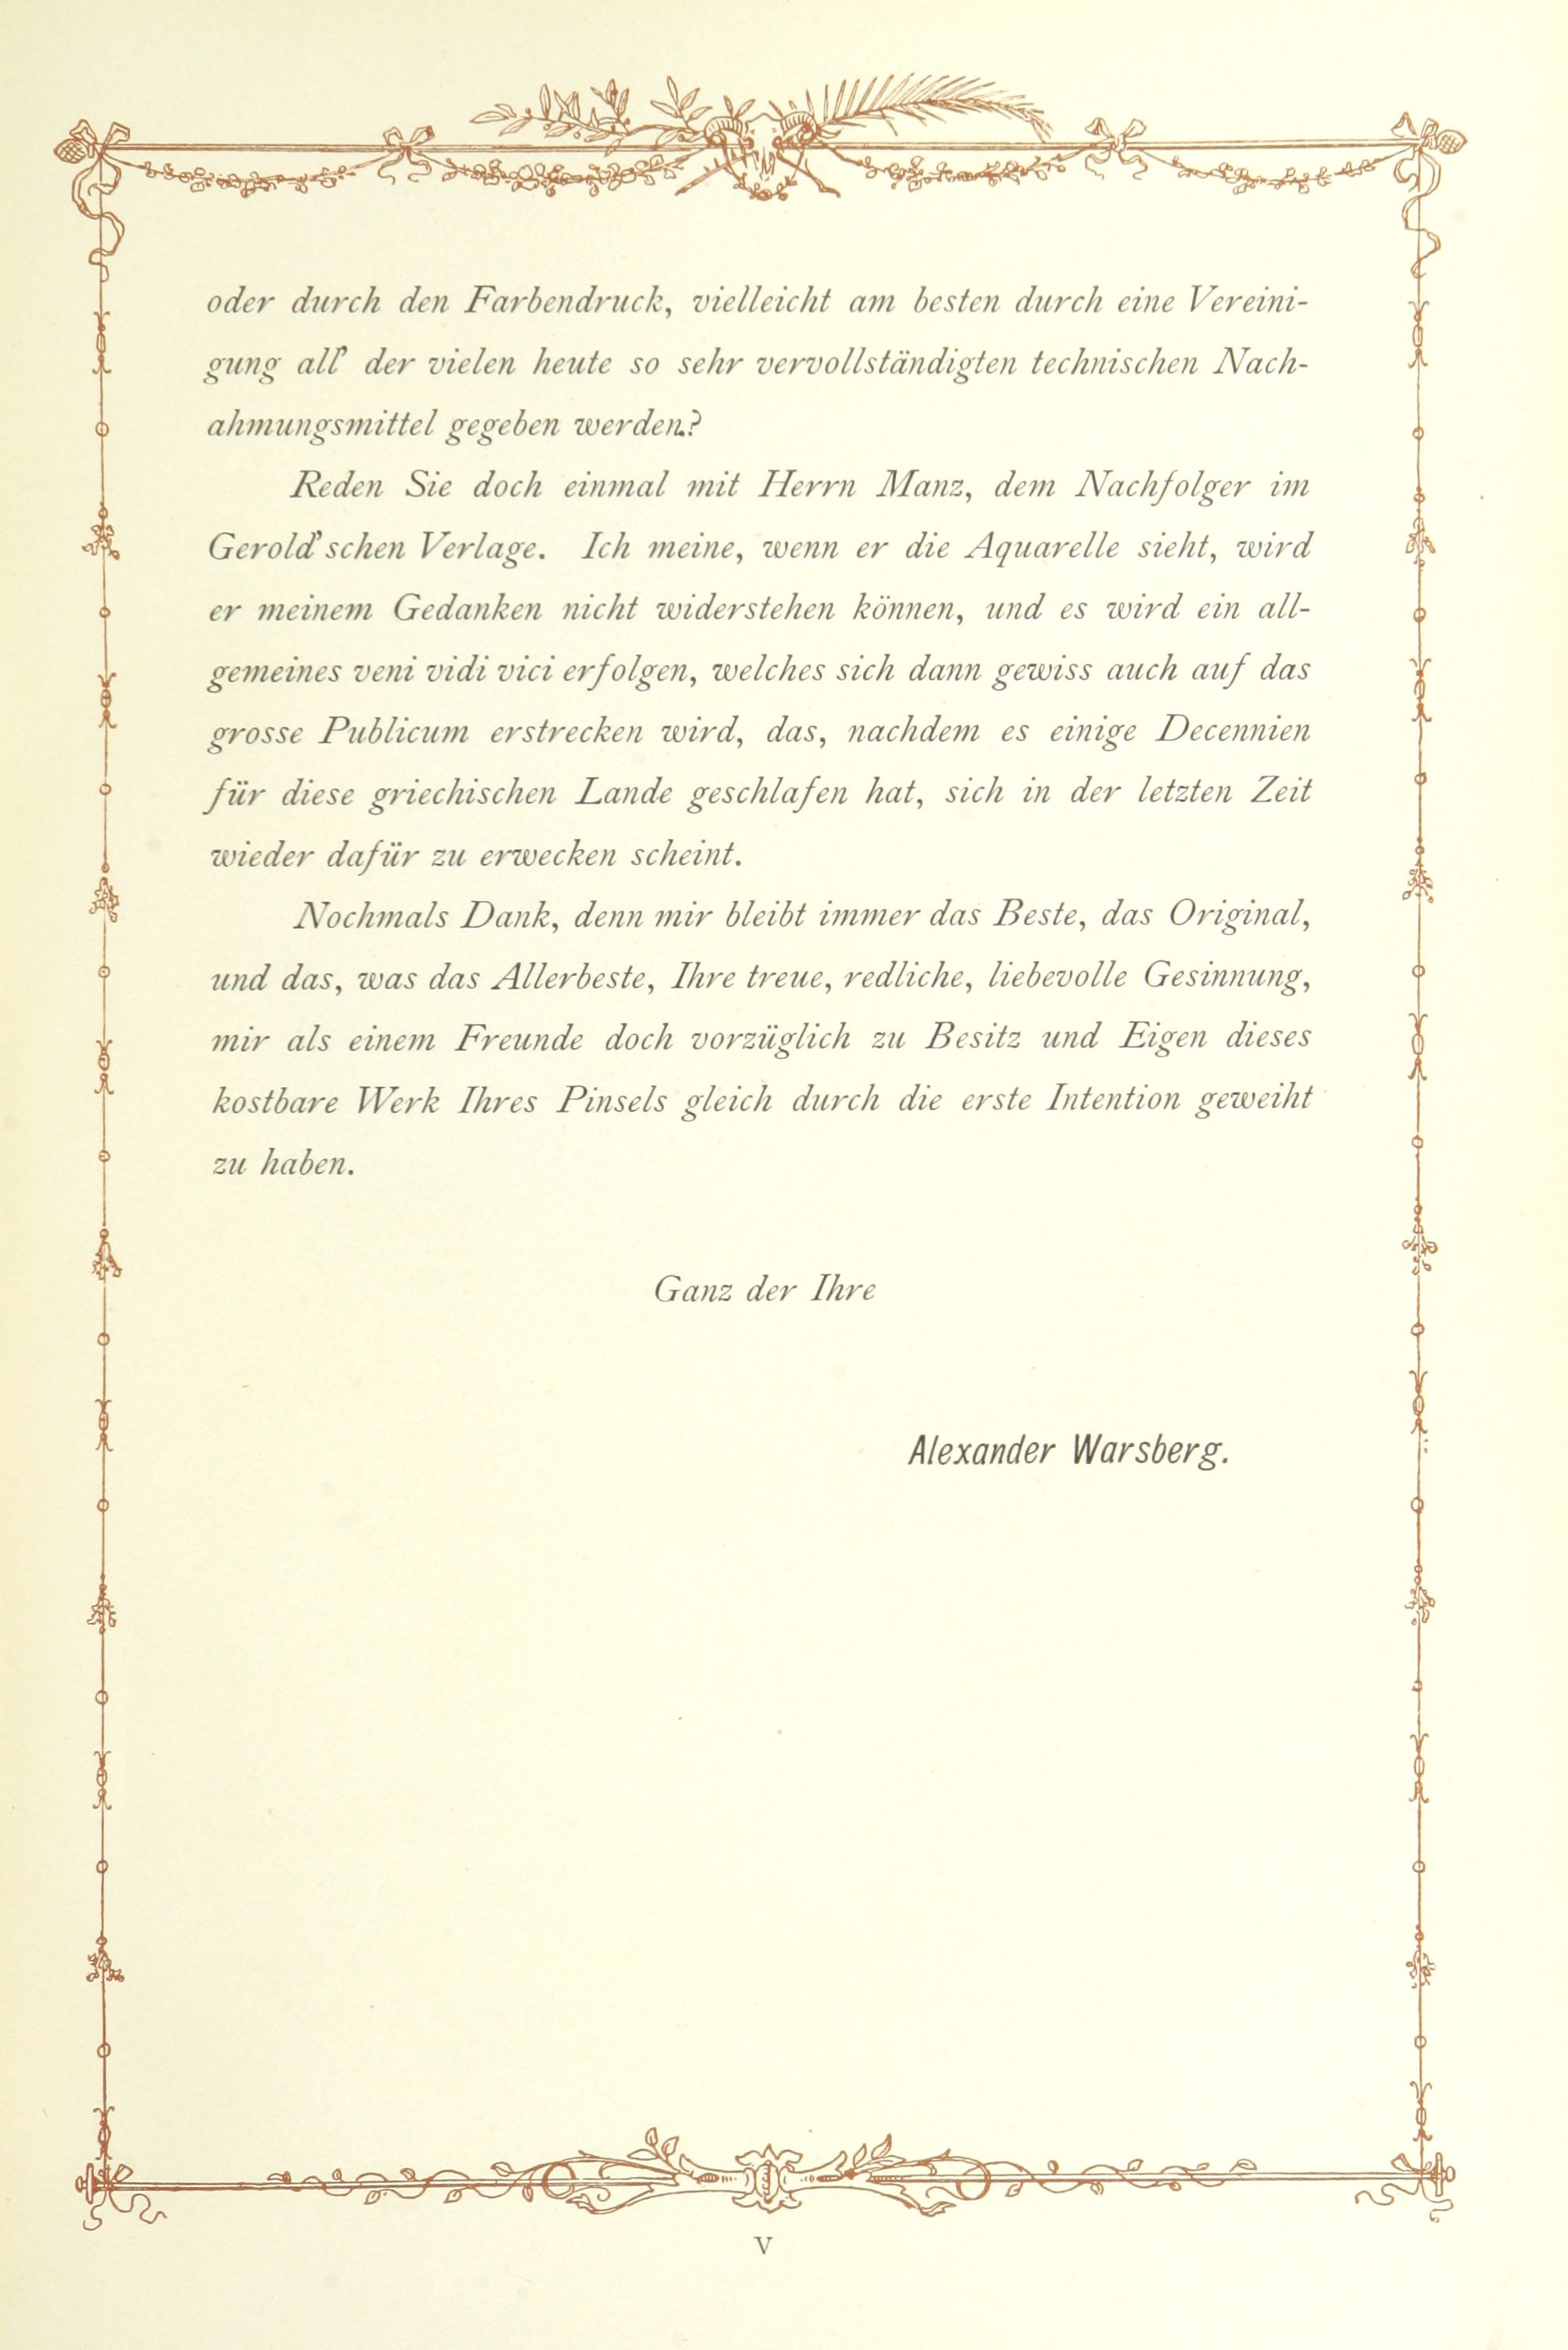 oder durch den Farbendruck, vielleicht am besten durch eine Vereini-
gung all' der vielen heute so sehr vervollständigten technischen Nach-
ahmungsmittel gegeben werden.?
Reden Sie doch einmal mit Herrn Manz, dem Nachfolger im
Gerold'schen Verlage. Ich meine, wenn er die Aquarelle sieht, wird
er meinem Gedanken nicht widerstehen können, und es wird ein all-
gemeines veni vidi vici erfolgen, welches sich dann gewiss auch auf das
grosse Publicum erstrecken wird, das, nachdem es einige Decennien
für diese griechischen Lande geschlafen hat, sich in der letzten Zeit
wieder dafür zu erwecken scheint.
Nochmals Dank, denn mir bleibt immer das Beste, das Original,
und das, was das Allerbeste, Ihre treue, redliche, liebevolle Gesinnung,
mir als einem Freunde doch vorzüglich zu Besitz und Eigen dieses
kostbare Werk Ihres Pinsels gleich durch die erste Intention geweiht
zu haben.
Ganz der Ihre
Alexander Warsberg.
V